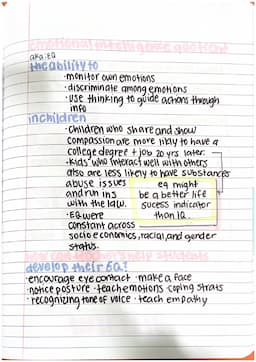 emotional intelligence quotient
aka: EQ
the ability to
· monitor own emotions
· discriminate among emotions
· use thinking to guide actions through
info
in children
· children who share and show
compassion are more likely to have a
college degree + job 20 yrs later
· kids who interact well with others
also are less likely to have substances
abuse issues
and run ins
with the law.
eq might
be a better life
sucess indicator
than IQ.
· EQ were
constant across
socioeconomics, racial, and gender
status.
how can teachers help students
develop their EQ?
· encourage eye contact · make a face
· notice posture · teach emotions · coping strats
· recognizing tone of voice · teach empathy